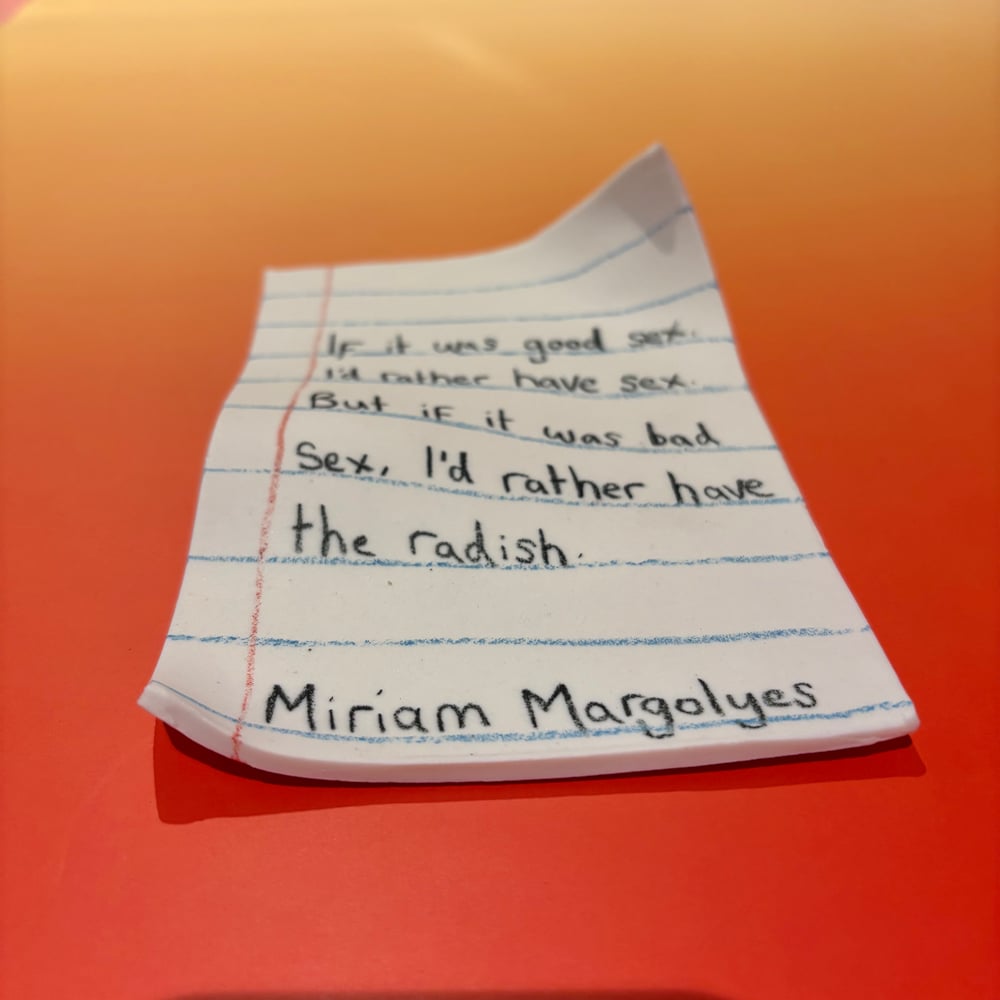 If it was good sex.
I'd rather have sex.
But if it was bad
Sex, I'd rather have
the radish.
Miriam Margolyes